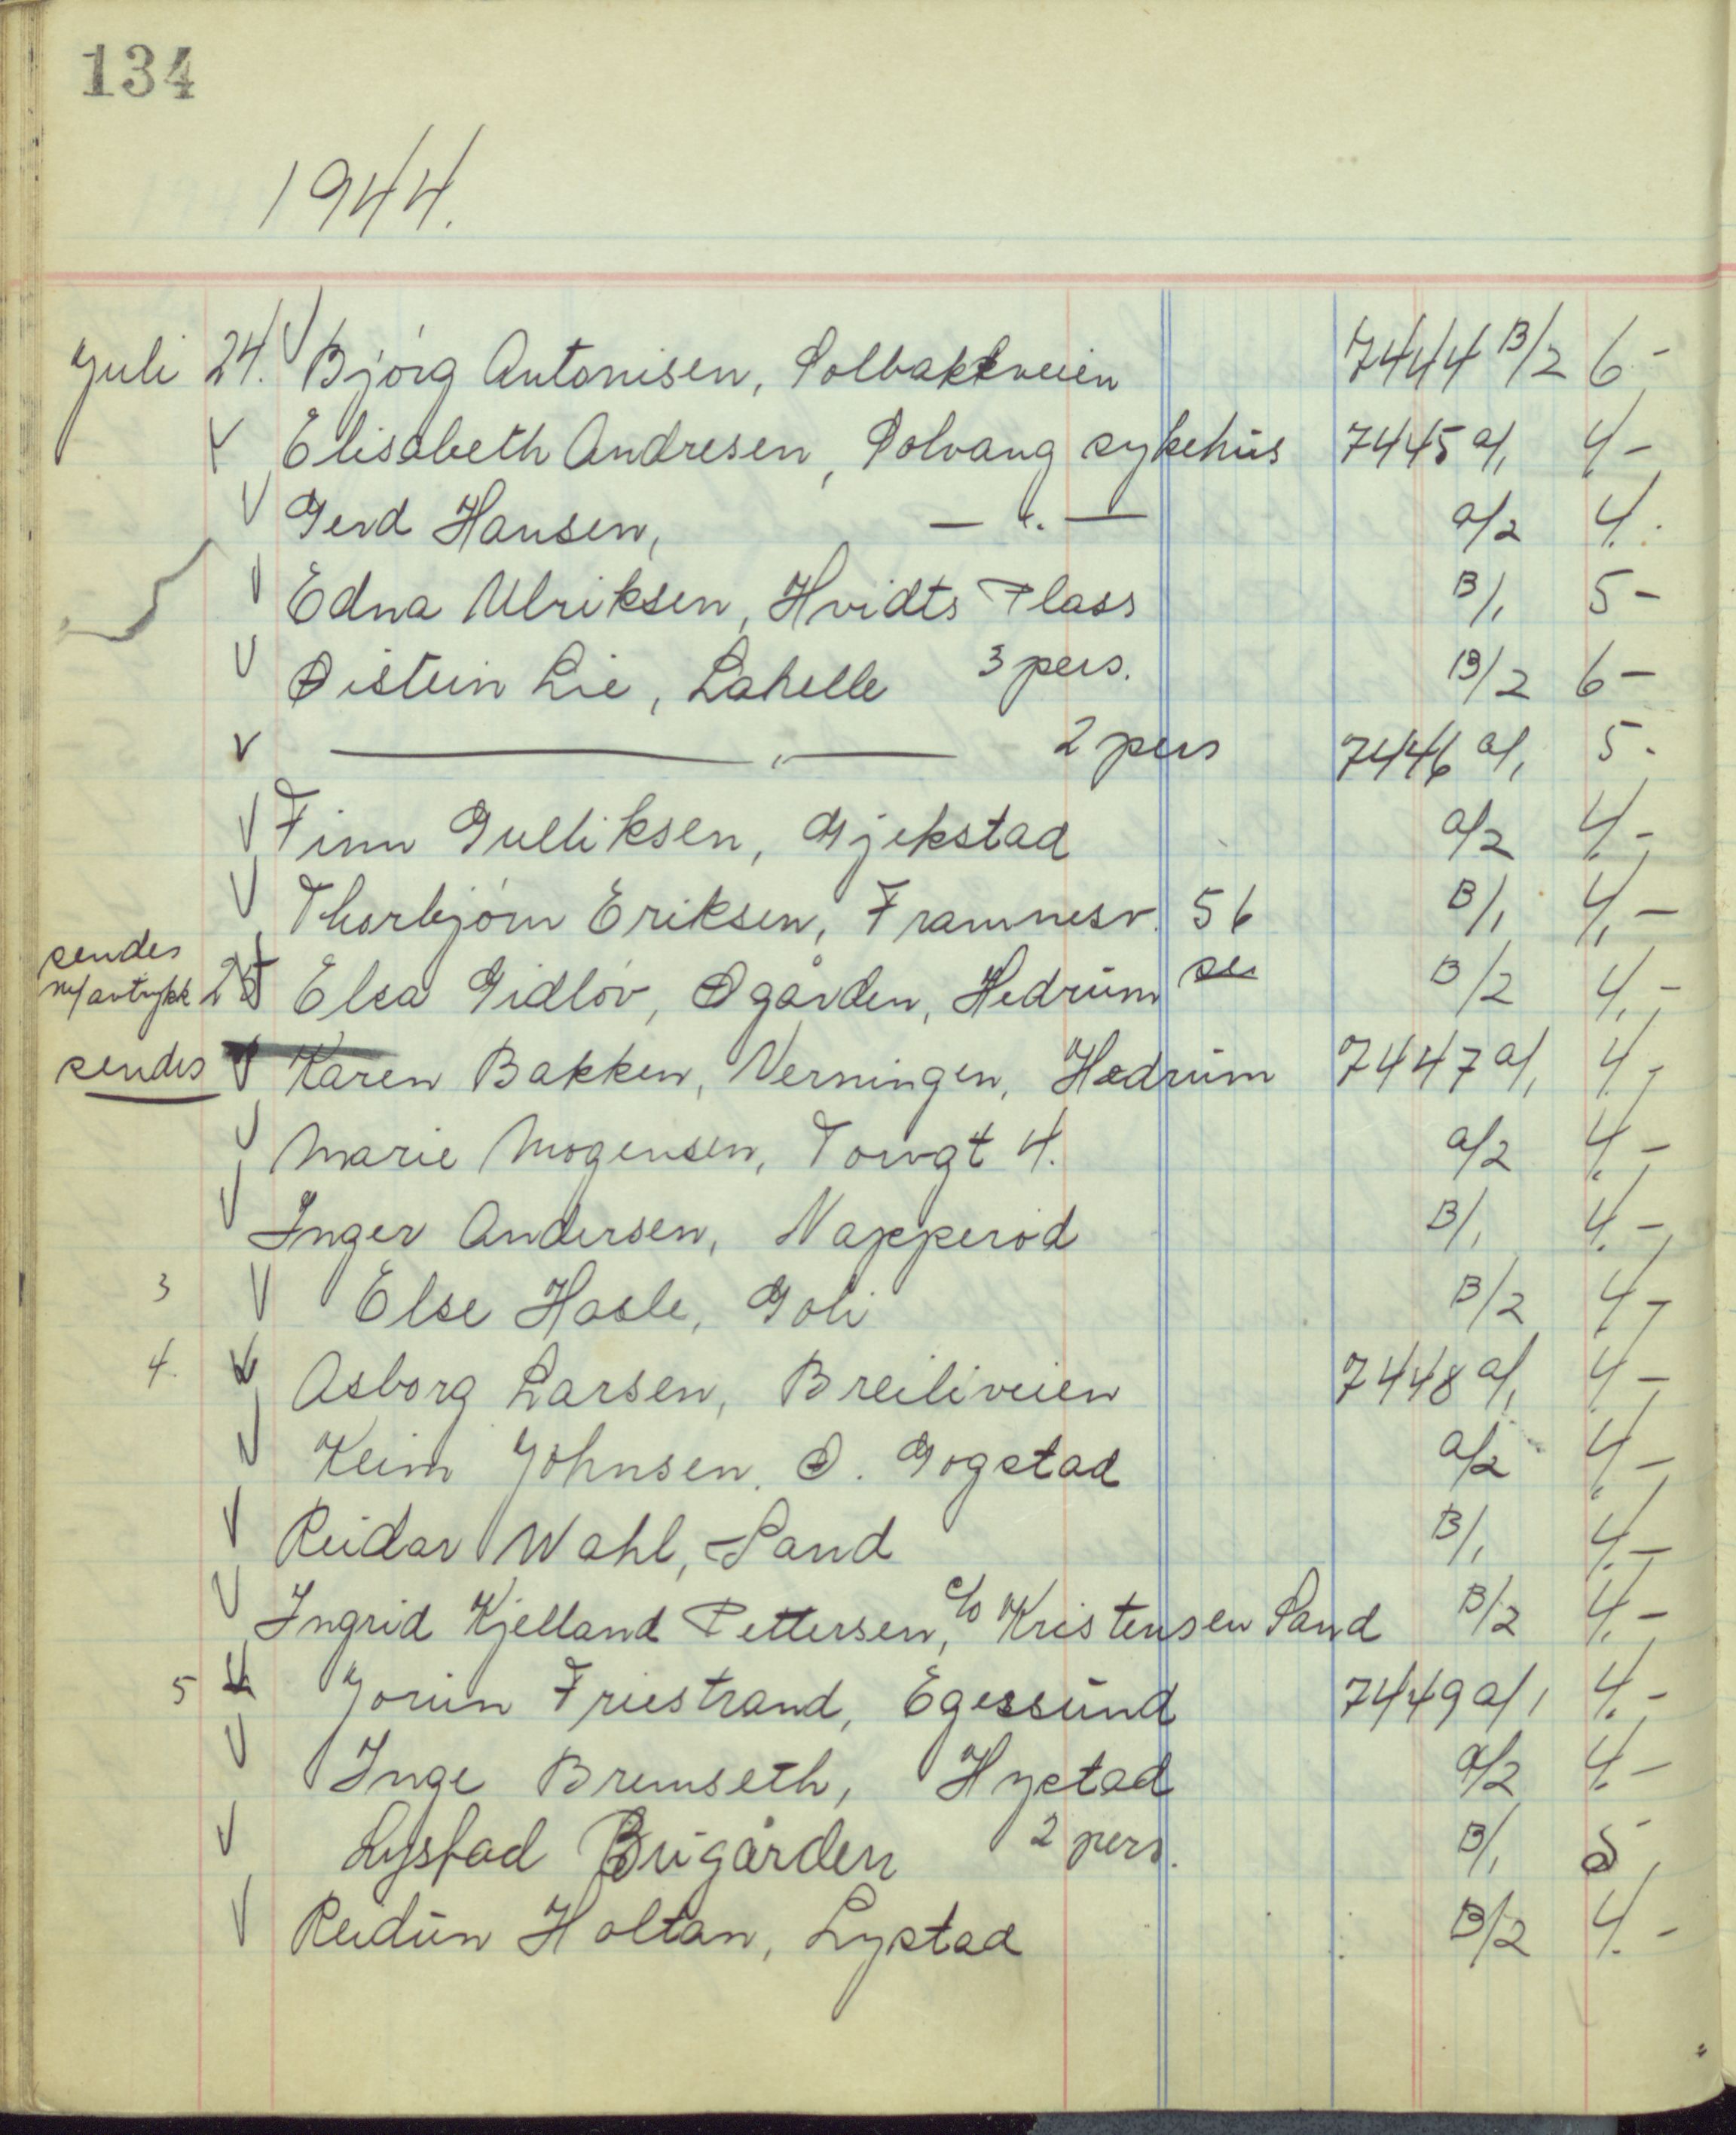 134
1944.
Juli 24. V Bjørg Antonisen, Solbakkveien 7444 B/2 6 -
V Elisabeth Andresen, Solvang sykehus 7445 a/1 4 -
V Gerd Hansen, — " — a/2 4.
V Edna Ulriksen, Hvidts Plass B/1 5 -
V Øistein Lie, Lahelle 3 pers. B/2 6 -
V — " — 2 pers 7446 a/1 5 -
V Finn Gulliksen, Gjekstad a/2 4. -
V Thorbjørn Eriksen, Framnesv. 56 B/1 4, -
sendes
m/avtrykk 25 Elsa Gidløv, Øgården, Hedrum B/2 4, -
sendes V Karen Bakken, Verningen, Hedrum 7447 a/1 4. -
V Marie Mogensen, Torvgt 4. a/2 4. -
V Inger Andersen, Napperød B/1 4. -
3 V Else Hasle, Goli B/2 4 -
4. V Asborg Larsen, Breiliveien 7448 a/1 4 -
V Keim Johnsen, Ø. Gogstad a/2 4 -
V Reidar Wahl, Sand B/1 4. -
V Ingrid Kjelland Pettersen, c/o Kristensen Sand B/2 4. -
5 V Jorun Friestrand, Egersund 7449 a/1 4. -
V Inge Bremseth, Hystad a/2 4. -
V Lystad Bugården 2 pers. B/1 5 -
V Reidun Holtan, Lystad B/2 4. -